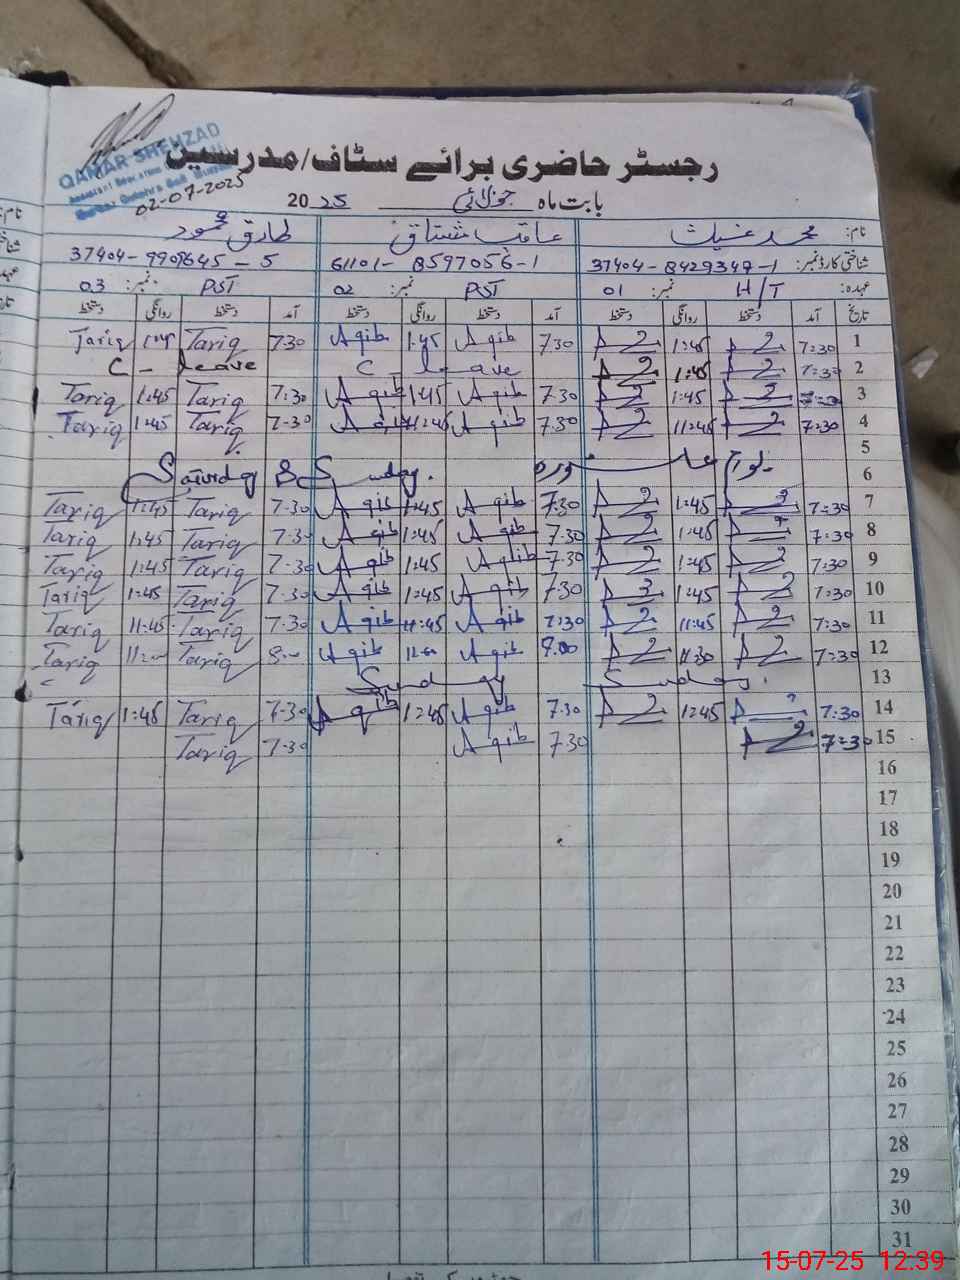 QAMAR SHEHZAD
02-07-2025
رجسٹر حاضری برائے سٹاف/مدرسین
بابت ماہ جولائی 2025
نام: محمد غیاث عاقب مشتاق طارق محمود
شناختی کارڈ نمبر: 37404-8429349-1 61101-8597056-1 37404-9909645-5
عہدہ: H/T نمبر: 01 PST نمبر: 02 PST نمبر: 03
تاریخ آمد دستخط روانگی دستخط آمد دستخط روانگی دستخط آمد دستخط روانگی دستخط
1 7:30 1:45 7.30 Aqib 1:45 Aqib 7.30 Tariq 1:45 Tariq
2 7:30 1:45 C - leave C - leave
3 7:30 1:45 7.30 Aqib 1:45 Aqib 7.30 Tariq 1:45 Tariq
4 7:30 11:45 7.30 Aqib 11:45 Aqib 7.30 Tariq 1:45 Tariq
5
6 Saturday & Sunday.
7 7:30 1:45 7.30 Aqib 1:45 Aqib 7.30 Tariq 1:45 Tariq
8 7:30 1:45 7.30 Aqib 1:45 Aqib 7.30 Tariq 1:45 Tariq
9 7:30 1:45 7.30 Aqib 1:45 Aqib 7.30 Tariq 1:45 Tariq
10 7:30 1:45 7.30 Aqib 1:45 Aqib 7.30 Tariq 1:45 Tariq
11 7:30 11:45 7:30 Aqib 11:45 Aqib 7.30 Tariq 11:45 Tariq
12 7:30 11:30 8.00 Aqib 11:00 Aqib 8.00 Tariq 11:00 Tariq
13 Sunday. Sunday
14 7:30 1:45 7.30 Aqib 1:45 Aqib 7.30 Tariq 1:45 Tariq
15 7:30 7.30 Aqib 7.30 Tariq
16
17
18
19
20
21
22
23
24
25
26
27
28
29
30
31
15-07-25 12.39